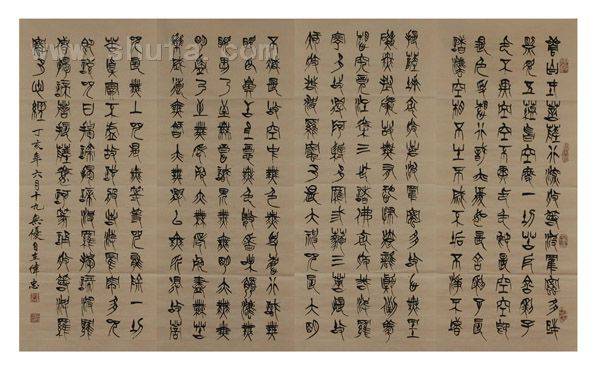 觀自在菩薩行深般若波羅蜜多時
照見五蘊皆空度一切苦厄舍利子
色不異空空不異色色即是空空即
是色受想行識亦復如是舍利子是
諸法空相不生不滅不垢不淨不增
提薩埵依般若波羅蜜多故心無罣
礙無罣礙故無有恐怖遠離顛倒夢
想究竟涅槃三世諸佛依般若波羅
蜜多故得阿耨多羅三藐三菩提故
知般若波羅蜜多是大神咒是大明
不減是故空中無色無受想行識無
眼耳鼻舌身意無色聲香味觸法無
眼界乃至無意識界無無明亦無無
明盡乃至無老死亦無老死盡無苦
集滅道無智亦無得以無所得故菩
咒是無上咒是無等等咒能除一切
苦真實不虛故說般若波羅蜜多咒
即說咒曰揭諦揭諦波羅揭諦波羅
僧揭諦菩提薩婆訶摩訶般若波羅
蜜多心經 丁亥年六月十九 無憂自在偉忠